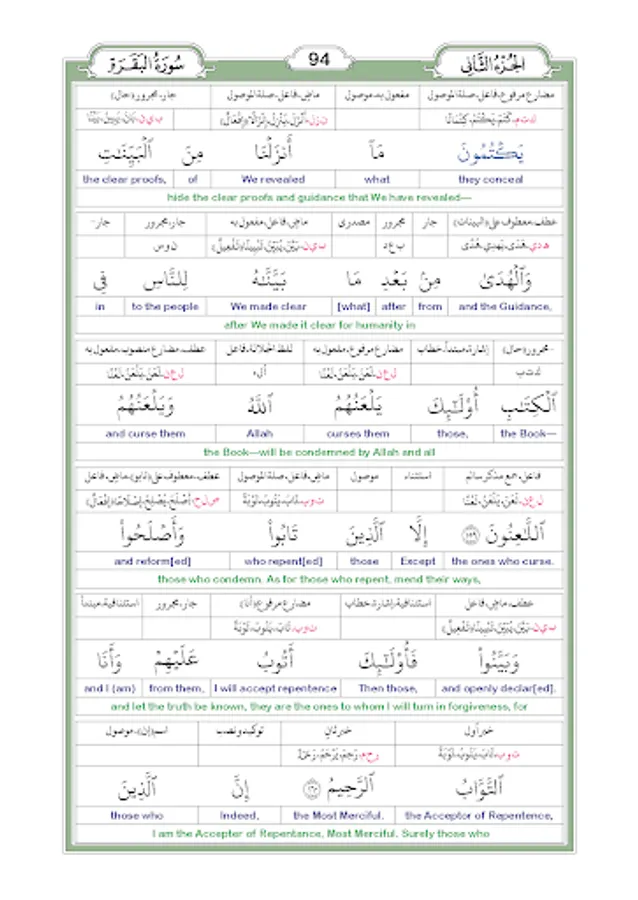 سُورَةُ البَقَرَةِ 94 الجُزْءُ الثَّانِي
مضارع مرفوع، فاعل، صلة الموصول مفعول به، موصول ماضٍ، فاعل، صلة الموصول جار، مجرور (حال)
كتم، كَتَمَ، يَكْتُمُ، كِتْمَانًا نزل، أَنْزَلَ، يُنْزِلُ، إِنْزَالًا (إِفْعَال)
يَكْتُمُونَ مَآ أَنزَلْنَا مِنَ ٱلْبَيِّنَـٰتِ
they conceal what We revealed of the clear proofs,
hide the clear proofs and guidance that We have revealed—
عطف، معطوف على (البينات) جار مجرور مصدرى ماضٍ، فاعل، مفعول به جار، مجرور جار-
هدي، هَدَى، يَهْدِي، هُدًى بعد بين، بَيَّنَ، يُبَيِّنُ، تَبْيِينًا (تَفْعِيل) نوس
وَٱلْهُدَىٰ مِنۢ بَعْدِ مَا بَيَّنَّـٰهُ لِلنَّاسِ فِى
and the Guidance, from after [what] We made clear to the people in
after We made it clear for humanity in
-مجرور (حال) إشارة، مبتدأ، خطاب مضارع مرفوع، مفعول به لفظ الجلالة، فاعل عطف، مضارع منصوب، مفعول به
كتب لعن، لَعَنَ، يَلْعَنُ، لَعْنًا أله لعن، لَعَنَ، يَلْعَنُ، لَعْنًا
ٱلْكِتَـٰبِ أُو۟لَـٰٓئِكَ يَلْعَنُهُمُ ٱللَّهُ وَيَلْعَنُهُمُ
the Book— those, curses them Allah and curse them
the Book—will be condemned by Allah and all
فاعل، جمع مذكر سالم استثناء موصول ماضٍ، فاعل، صلة الموصول عطف، معطوف على (تابو)، ماضٍ، فاعل
لعن، لَعَنَ، يَلْعَنُ، لَعْنًا توب، تَابَ، يَتُوبُ، تَوْبَةً صلح، أَصْلَحَ، يُصْلِحُ، إِصْلَاحًا (إِفْعَال)
ٱللَّـٰعِنُونَ ١٥٩ إِلَّا ٱلَّذِينَ تَابُوا۟ وَأَصْلَحُوا۟
the ones who curse. Except those who repent[ed] and reform[ed]
those who condemn. As for those who repent, mend their ways,
عطف، ماضٍ، فاعل استئنافية، إشارة، خطاب مضارع مرفوع (أنا) جار، مجرور استئنافية، مبتدأ
بين، بَيَّنَ، يُبَيِّنُ، تَبْيِينًا (تَفْعِيل) توب، تَابَ، يَتُوبُ، تَوْبَةً
وَبَيَّنُوا۟ فَأُو۟لَـٰٓئِكَ أَتُوبُ عَلَيْهِمْ وَأَنَا
and openly declar[ed]. Then those, I will accept repentence from them, and I (am)
and let the truth be known, they are the ones to whom I will turn in forgiveness, for
خبر أول خبر ثانٍ توكيد ونصب اسم (إن)، موصول
توب، تَابَ، يَتُوبُ، تَوْبَةً رحم، رَحِمَ، يَرْحَمُ، رَحْمَةً
ٱلتَّوَّابُ ٱلرَّحِيمُ ١٦٠ إِنَّ ٱلَّذِينَ
the Acceptor of Repentence, the Most Merciful. Indeed, those who
I am the Accepter of Repentance, Most Merciful. Surely those who